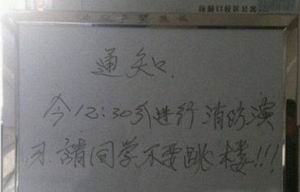 通知.
今12:30分进行消防演
习請同学不要跳楼!!!